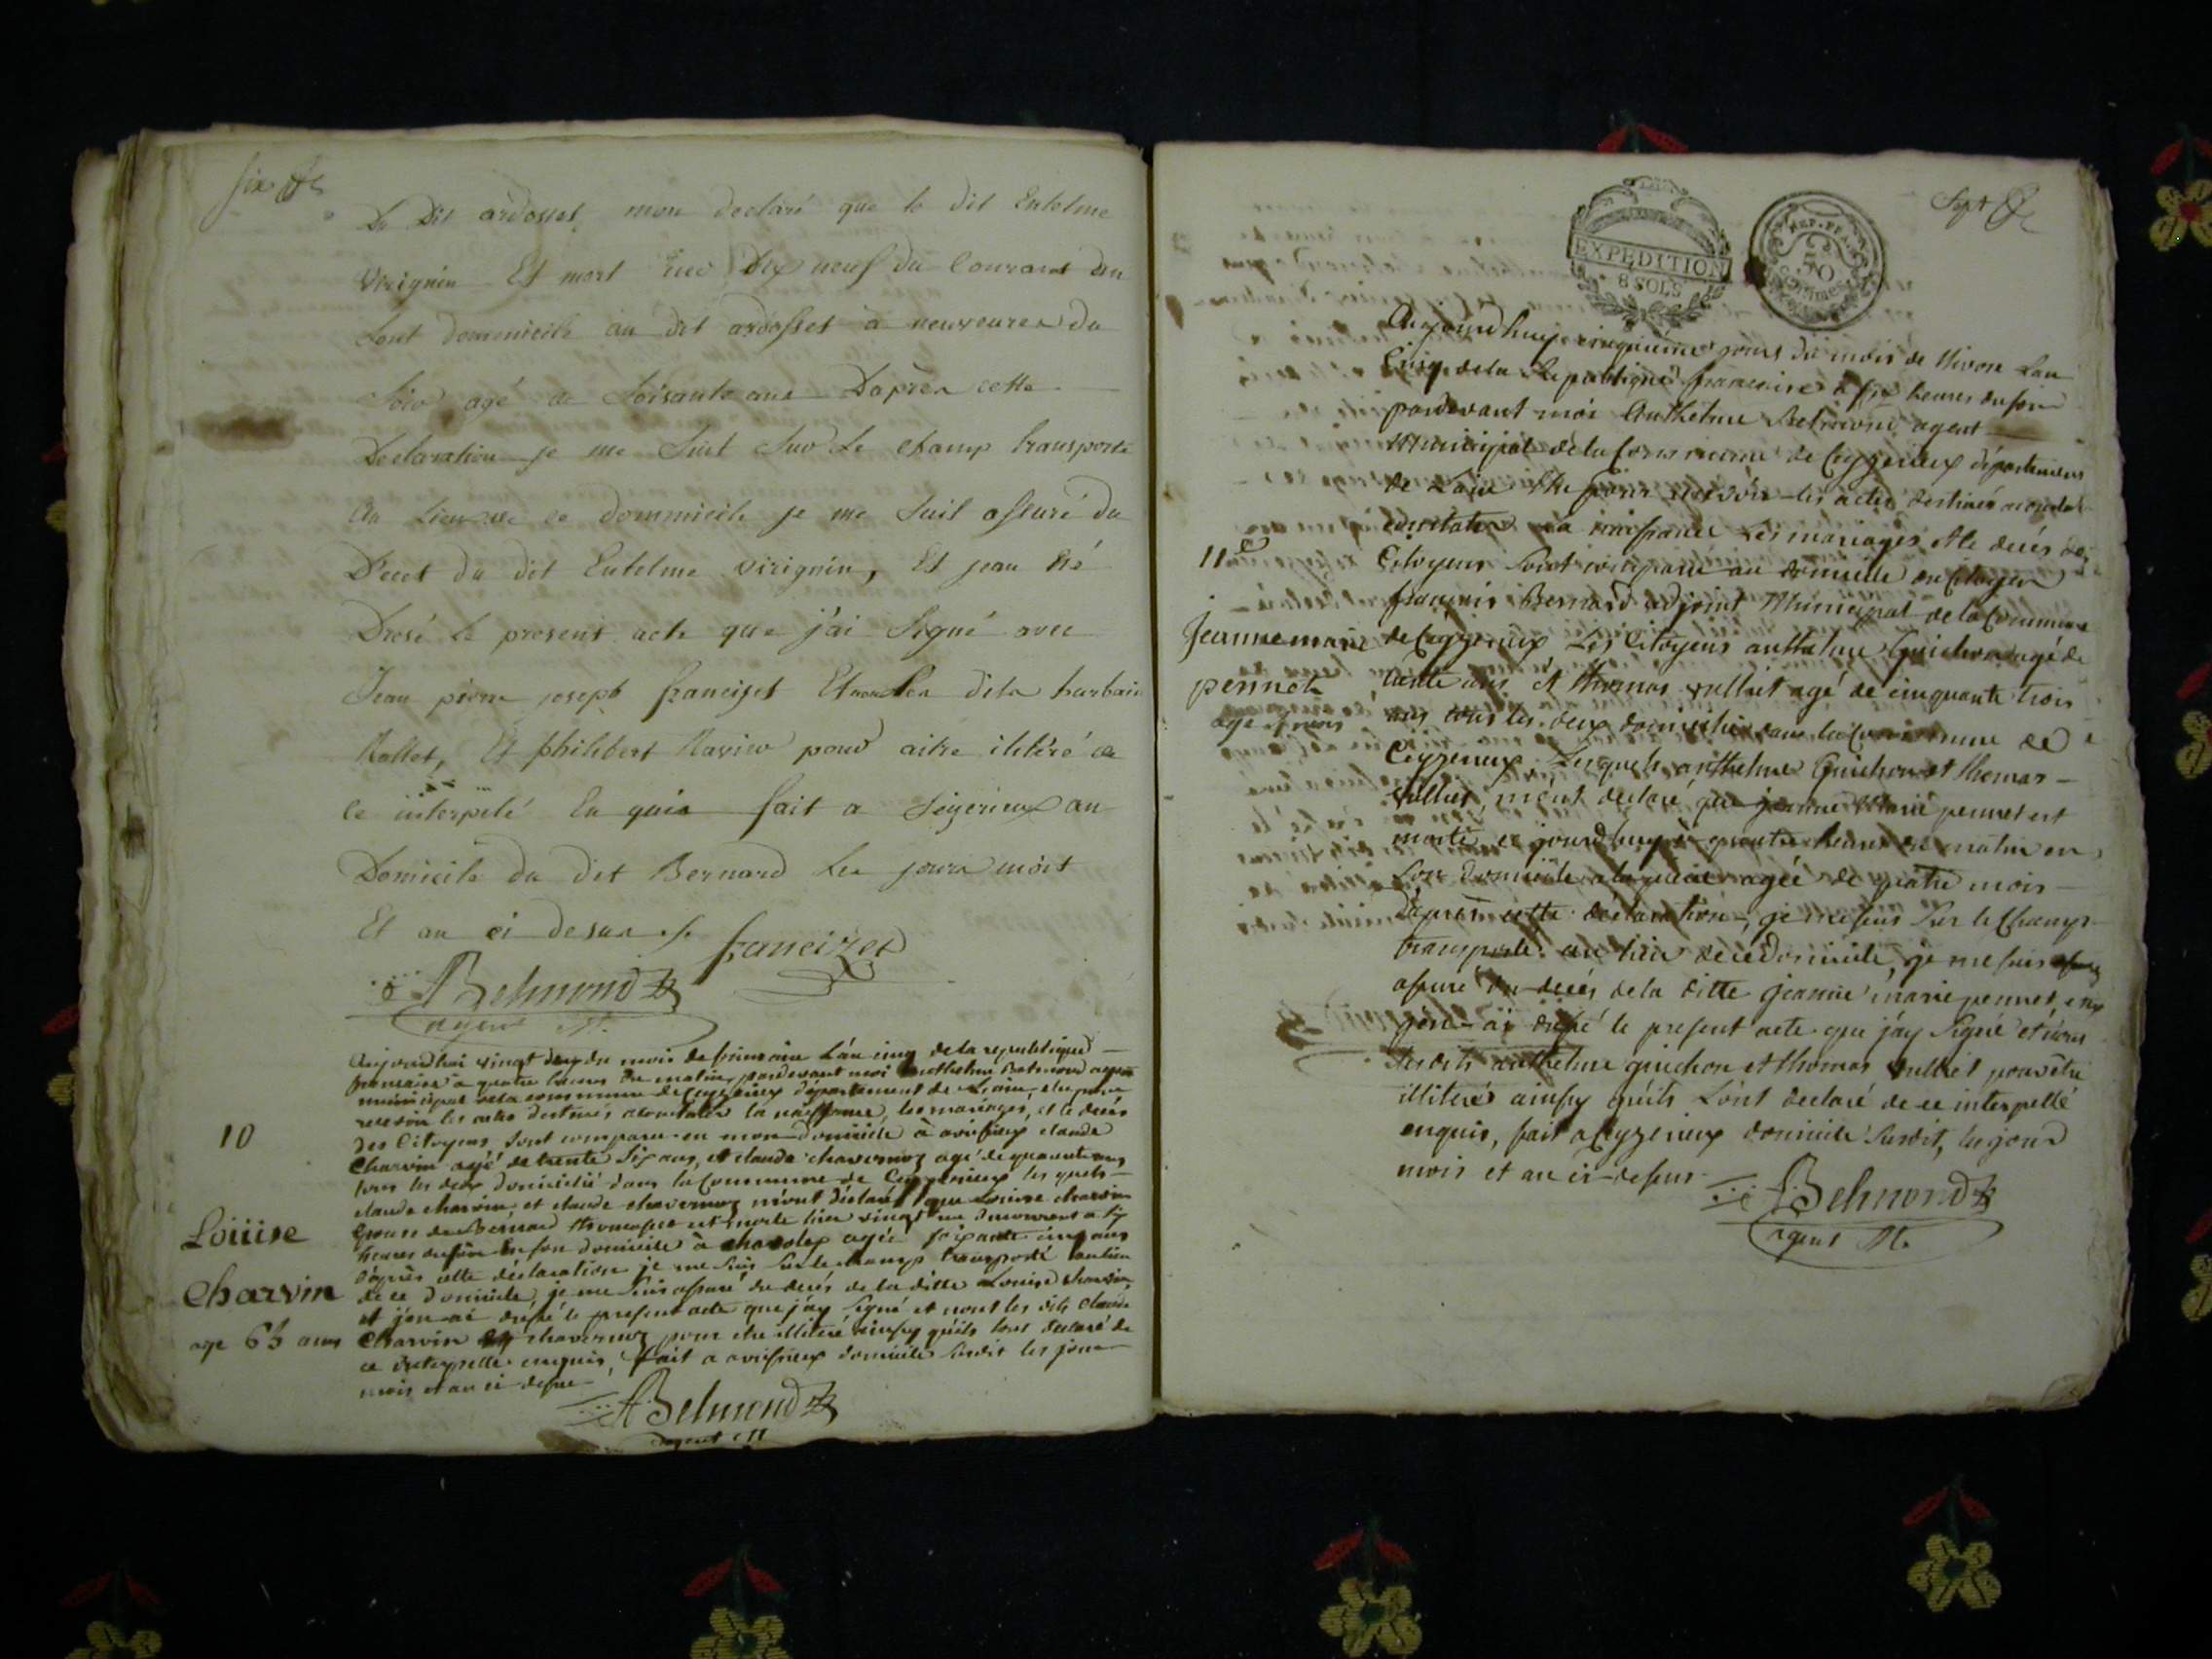 six
Le Dit ardosset, mon declaré que le dit Entelme
Virignin Est mort hier Dix neuf du Courant den
Sont dommicile au dit ardosset a neuveures du
Soir agé de Soisante ans Daprès cette
Declaration je me Suit Sur Le champ transporté
Au Lieu de ce dommicile je me Suit asseuré du
Décet du dit Entelme Virignin, Et jean né
Dresé le present acte que j'ai Signé avec
Jean pierre joseph franciset Et non les dits
Rollet, Et philibert Ravier pour aitre illitéré de
ce interpelé En quis fait a Seyzerieux au
Domicile du dit Bernard Les jours mois
Et an ci desus
francizet
ABelmond
agent M.
10
Louise
Charvin
age 65 ans
Aujourdhui vingt deux du mois de frimaire L'an cinq de la republique
francaise a quatre heures du matin, pardevant moi Anthelme Belmond agent
municipal de la commune de Ceyzerieux département de L'ain, elu pour
recevoir les actes destinés a constater la naissance, les mariages, et le decés
des Citoyens, sont comparu en mon domicile à avrissieux claude
Charvin agé de trente six ans, et claude chavernoz agé de quarante ans
tous les deux domicilié dans la Commune de Ceyzerieux les quels
claude charvin, et claude chavernoz m'ont déclaré que Louise charvin
Epouse de Bernard est morte hier vingt un du courant a six
heures du soir en son domicile à agée soixante cinq ans
d'après cette déclaration je me suis sur le champ transporté au lieu
de ce domicile, je me suis assuré du decés de la ditte Louise charvin,
et j'en ai dressé le present acte que j'ay signé et non les dits claude
Charvin et chavernoz pour etre illiteré ainsy qu'ils l'ont declaré de
ce interpellé enquis, fait a avrissieux domicile susdit les jour
mois et an ci-dessus
ABelmond
agent M
Sept
EXPEDITION
8 SOLS
REP. FRA.
50
Centimes
11e
Jeanne marie
pennet
age 4 mois
Aujourd'huy cinquième jours du mois de Nivose Lan
Cinq de la Republique francaise a six heures du soir
pardevant moi Anthelme Belmond agent
Municipal de la Commune de Ceyzerieux département
de L'ain Elu pour recevoir les actes destinés a
constater la naissance Les mariages et le decés des
Citoyens sont comparu au domicile du Citoyen
françois Bernard adjoint Municipal de la Commune
de Ceyzerieux Les Citoyens anthelme Guichon agé de
trente ans et thomas vulliet agé de cinquante trois
ans tous les deux domicilié dans la Commune de
Ceyzerieux, Lesquels anthelme Guichon et thomas
vulliet, m'ont declaré que jeanne Marie pennet est
morte ce jourd'huy à quatre heures du matin en
son domicile agée de quatre mois
D'après cette declaration, je me suis sur le champs
transporté au lieu de ce Domicile, je me suis
assuré du decés de la ditte jeanne marie pennet, et
j'en ai dressé le present acte que j'ay signé et non
les dits anthelme guichon et thomas vulliet pour être
illiteré ainsy qu'ils L'ont declaré de ce interpellé
enquis, fait a Ceyzerieux domicile susdit, les jour
mois et an ci-dessus
ABelmond
agent M.